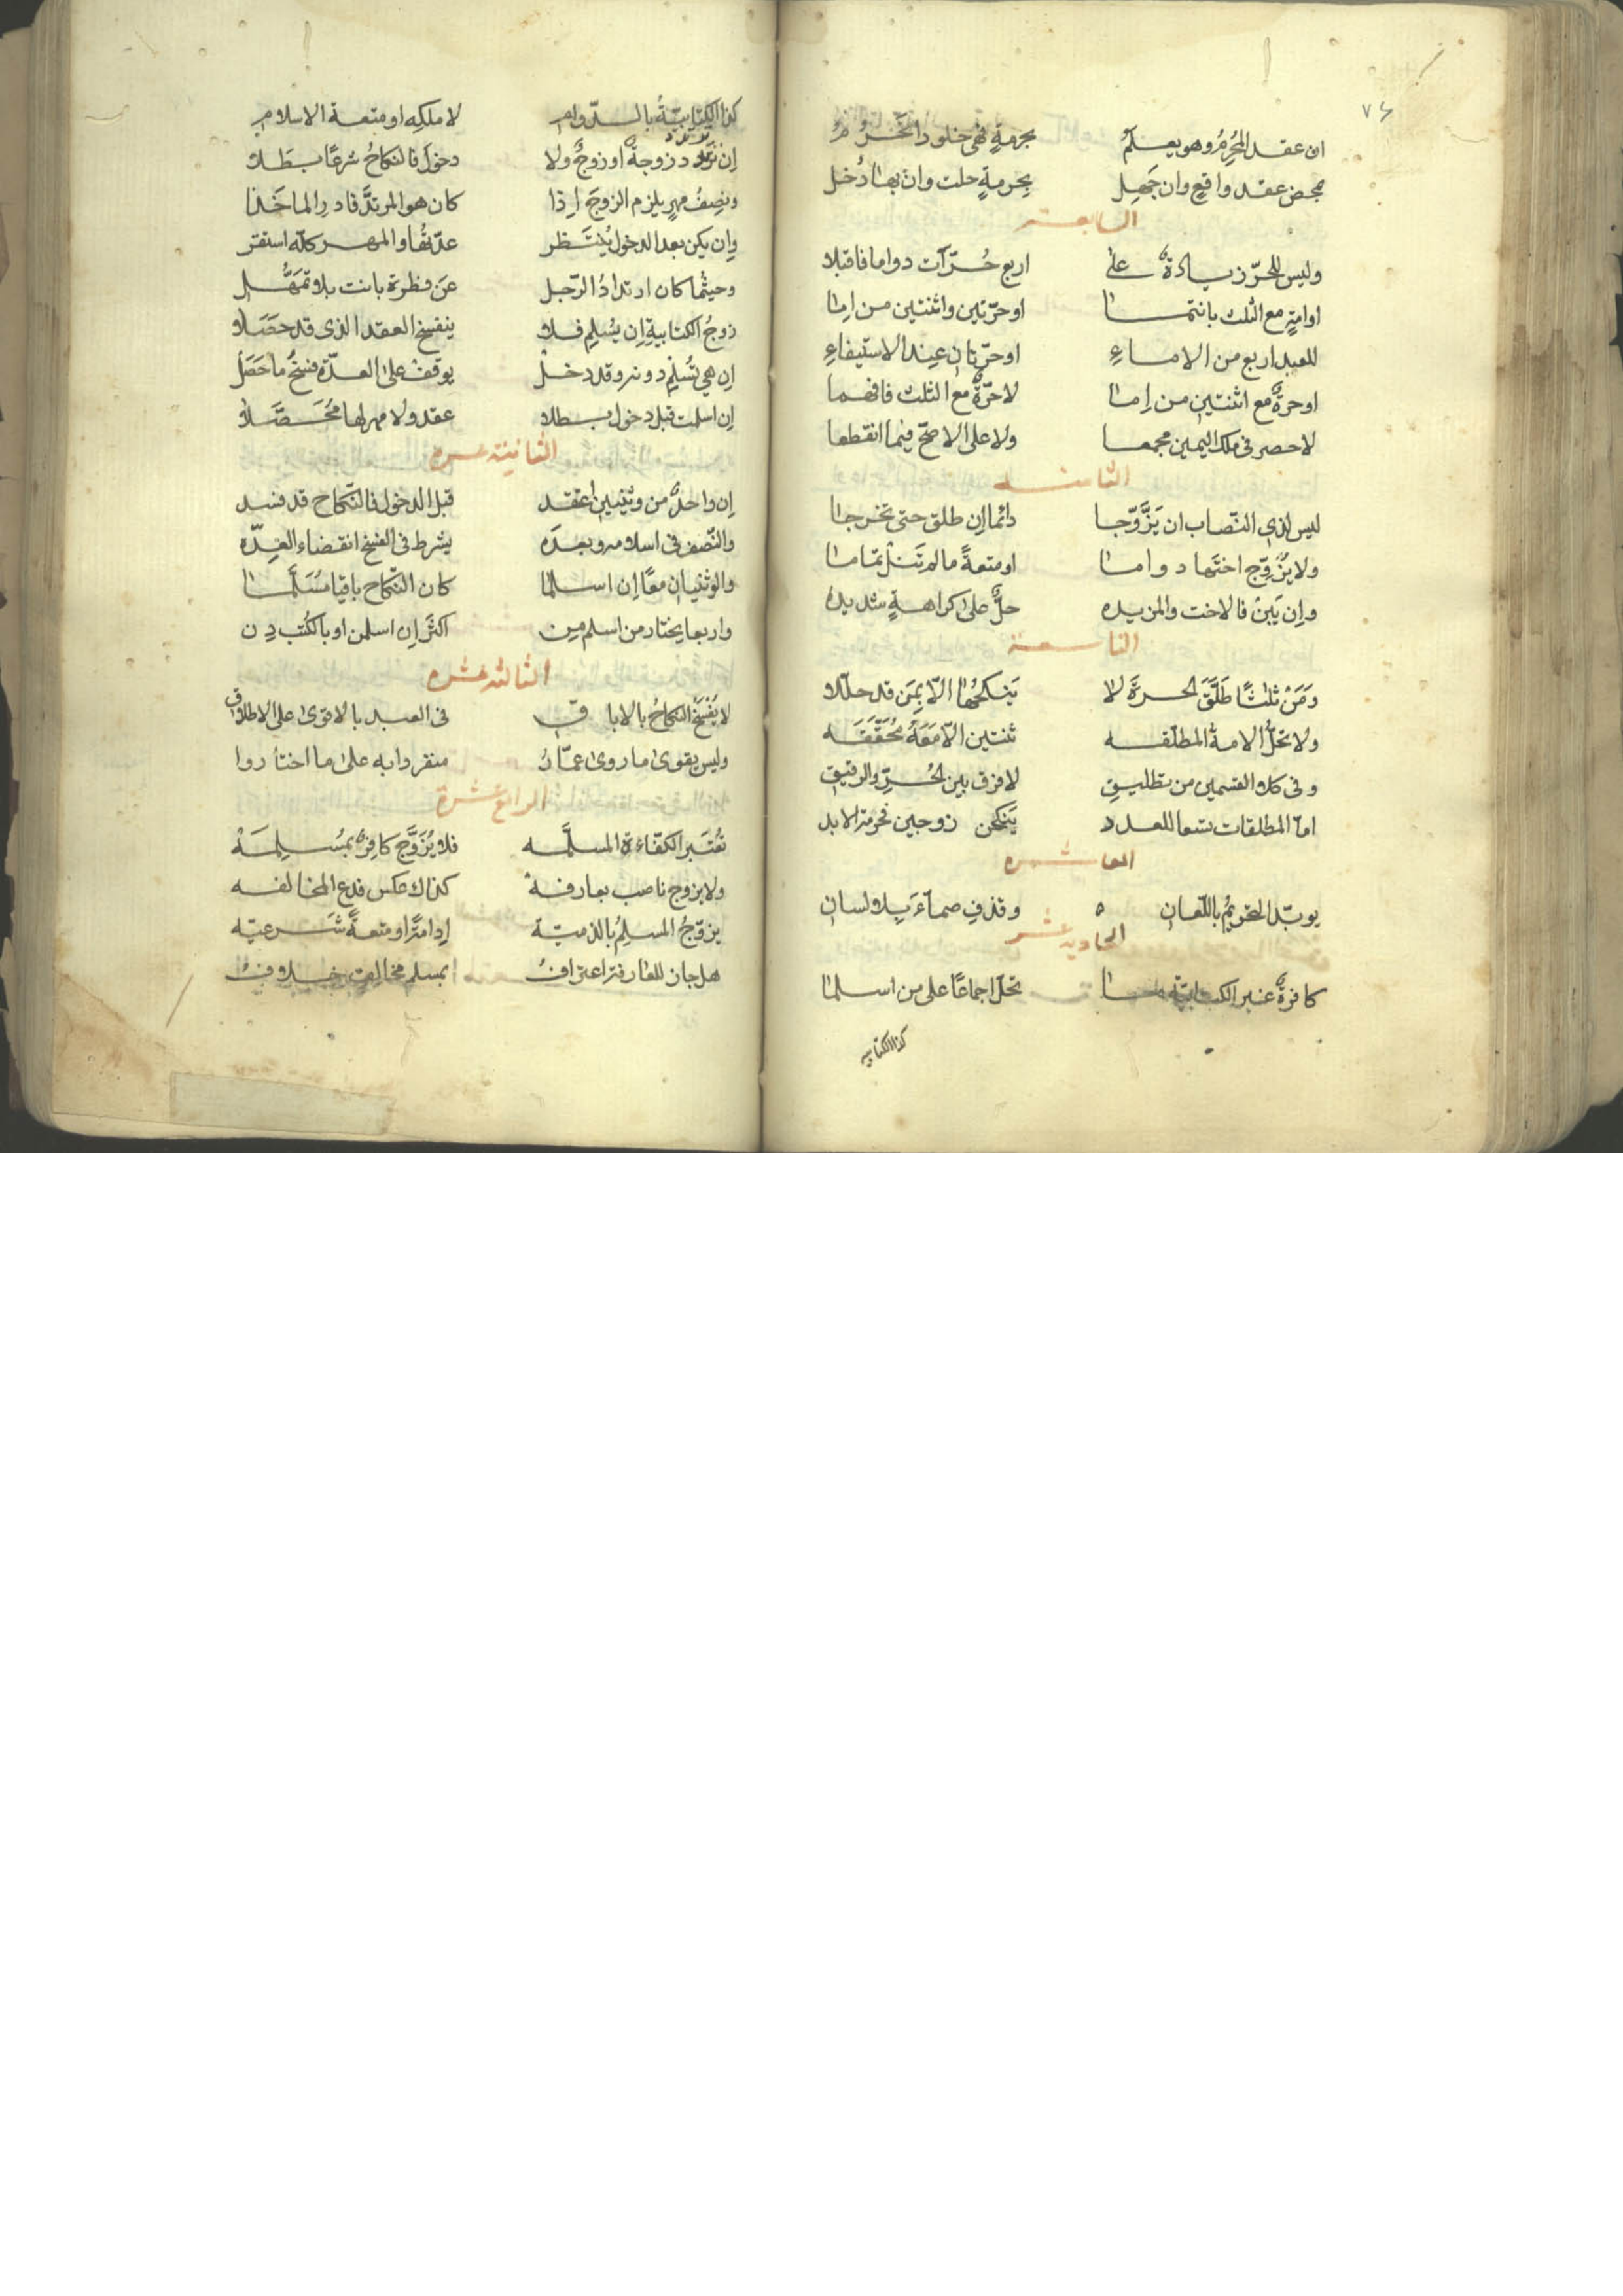 ٧٤
ان عقد المُحرِمُ وهو يعلمُ بحرمةٍ فهى خلود اتحرُمُ
بمحض عقد واقعٍ وان جَهِل بِحرمةٍ حلت وان بها دُخل
السابعة
وليس للحرّ زيادةٌ على اربع حُرّات دواما فاقبلا
اوامةٍ مع الثلث بانتما اوحرّتين واثنتين من اِما
للعبد اربع من الاماءِ اوحرّتان عند الاستيفاءِ
اوحرةٌ مع اثنتين من اِما لاحرّةٌ مع الثلث فافهما
لاحصر فى ملك اليمين مجمعا ولا على الاصحّ فيما انقطعا
الثامنه
ليس لذى النّصاب ان يَزَّوّجا دائما اِن طلق حتى تخرجا
ولا يُزوِّج اختَها دواما اومتعةً مالم تَنلْ تماما
واِن يَبِنْ فالاخت والمزيده حلٌّ على كراهةٍ شديده
التاسعة
وَمَنْ ثلاثًا طَلَّقَ الحرةَ لا يَنكحُها الّا بِمَن قد حلّلا
ولا تحلُّ الامة المطلّقه ثنتين الّا مَعَهُ مُحَقَّقَه
وفى كلا القسمين من تطليقِ لافرق بين الحُرِّ والرقيق
امّا المطلقات تسعا للعدد يَنكحن زوجين فحرمة الابد
العاشره
يوبّد التحريمُ باللّعان ٥ وقذفِ صمآءَ بِلا لسان
الحادية عشر
كافرةٌ غير الكتابيّة ما تحلّ اجماعًا على من اسلما
كذا الكتابيه
كذا الكتابيّةُ بالدّوام لا ملكِه او متعة الاسلام
اِن تَرتَدد زوجةٌ او زوجٌ ولا دخولَ فالنكاحُ شرعًا بَطَلا
ونِصفُ مهرٍ يلزم الزوجَ اِذا كان هو المرتدَّ فادرِ الماخَذا
واِن يكن بعد الدخول يُنتَظر عدّتُها والمهر كلّه استقر
وحيثُما كان ارتدادُ الرّجل عن فطرة بانت بلا تمَهُّل
زوجُ الكتابيةِ اِن يُسْلِم فلا ينفسخ العقد الذى قد حَصَلا
اِن هى تُسْلِم دونه وقد دخلْ يوقف على العدّة فسخُ ما حَصَلْ
اِن اسلمت قبل دخول بطلا عقد ولا مهر لها مُحَصَّلا
الثانية عشره
اِن واحدٌ من وثنيين اعتقد قبل الدخول فالنّكاح قد فسد
والنّصف فى اسلامه وبعدَه يشرط فى الفسخ انقضاء العِدّه
والوثنيان معًا اِن اسلما كان النّكاح باقيا مُسَلَّما
واربعا يختار من اسلم مِن اكثَر اِن اسلمن او بالكُتْب دِن
الثالثه عشره
لا يُفْسَخُ النكاحُ بالاباقِ فى العبد بالاقوى على الاطلاق
وليس يقوى ما روى عمّارُ منفردا به على ما اختاروا
الرابع عشرة
تُعْتَبر الكفاءة المسلَّمه فلا يُزَوَّج كافِرٌ بمُسْلِمَه
ولا يزوج ناصب بعارفهْ كذاك عكس فدع المخالفه
يزوّجُ المسلِمُ بالذميّة اِداَمةً او متعةً شَرعيّه
هل جاز للعارفة اعترافُ بمسلم مخالف خلافُ